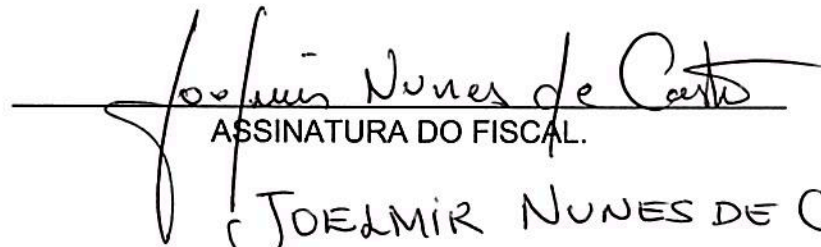 Joelmir Nunes de Castro
ASSINATURA DO FISCAL.
(JOELMIR NUNES DE C